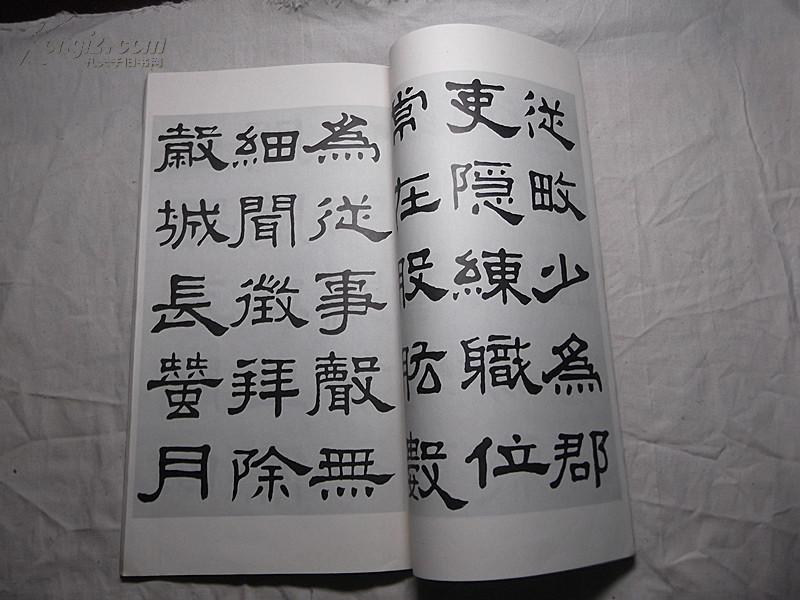 從畋少爲郡
吏隱練職位
常在股肱數
爲從事聲無
細聞徵拜除
穀城長蠶月
Kongfz.com
孔夫子旧书网